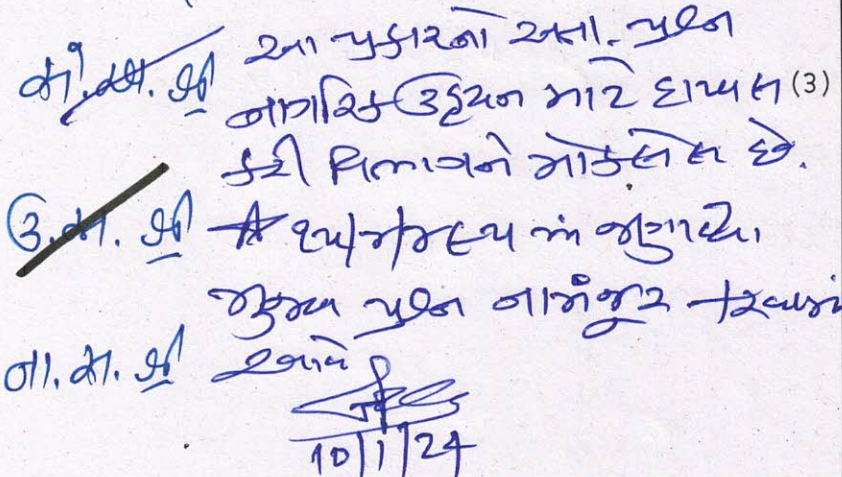 સે.અ.શ્રી આ પ્રકારનો અતા. પ્રશ્ન
નાગરિક ઉડ્ડયન માટે દાખલ (3)
કરી વિભાગને મોકલેલ છે.
ઉ.સ.શ્રી માં જણાવ્યા
મુજબ પ્રશ્ન નામંજૂર કરવામાં
ના.સ.શ્રી આવે
10/1/24